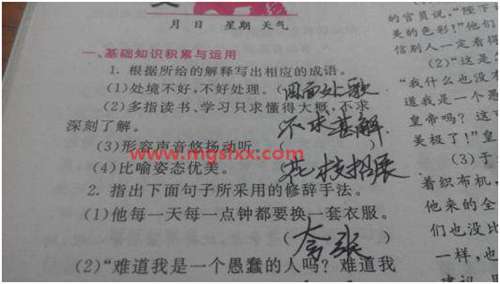 月 日 星期 天气
一、基础知识积累与运用
1. 根据所给的解释写出相应的成语。
(1)处境不好,不好处理。(四面处歌
(2)多指读书、学习只求懂得大概,不求
深刻了解。 不求甚解
(3)形容声音悠扬动听。(
www.mgslxx.com
(4)比喻姿态优美。 花枝招展
2. 指出下面句子所采用的修辞手法。
(1)他每一天每一点钟都要换一套衣服。
(夸张
(2)“难道我是一个愚蠢的人吗?难道我
的官员说,“陛下
美的色彩!”他们
信别人一定看得
(2)“这是
“我什么也没
道我是一个愚
皇帝吗?这
美极了!”皇
(3)于
着织布机,
他来的全
们也没比
一样,也